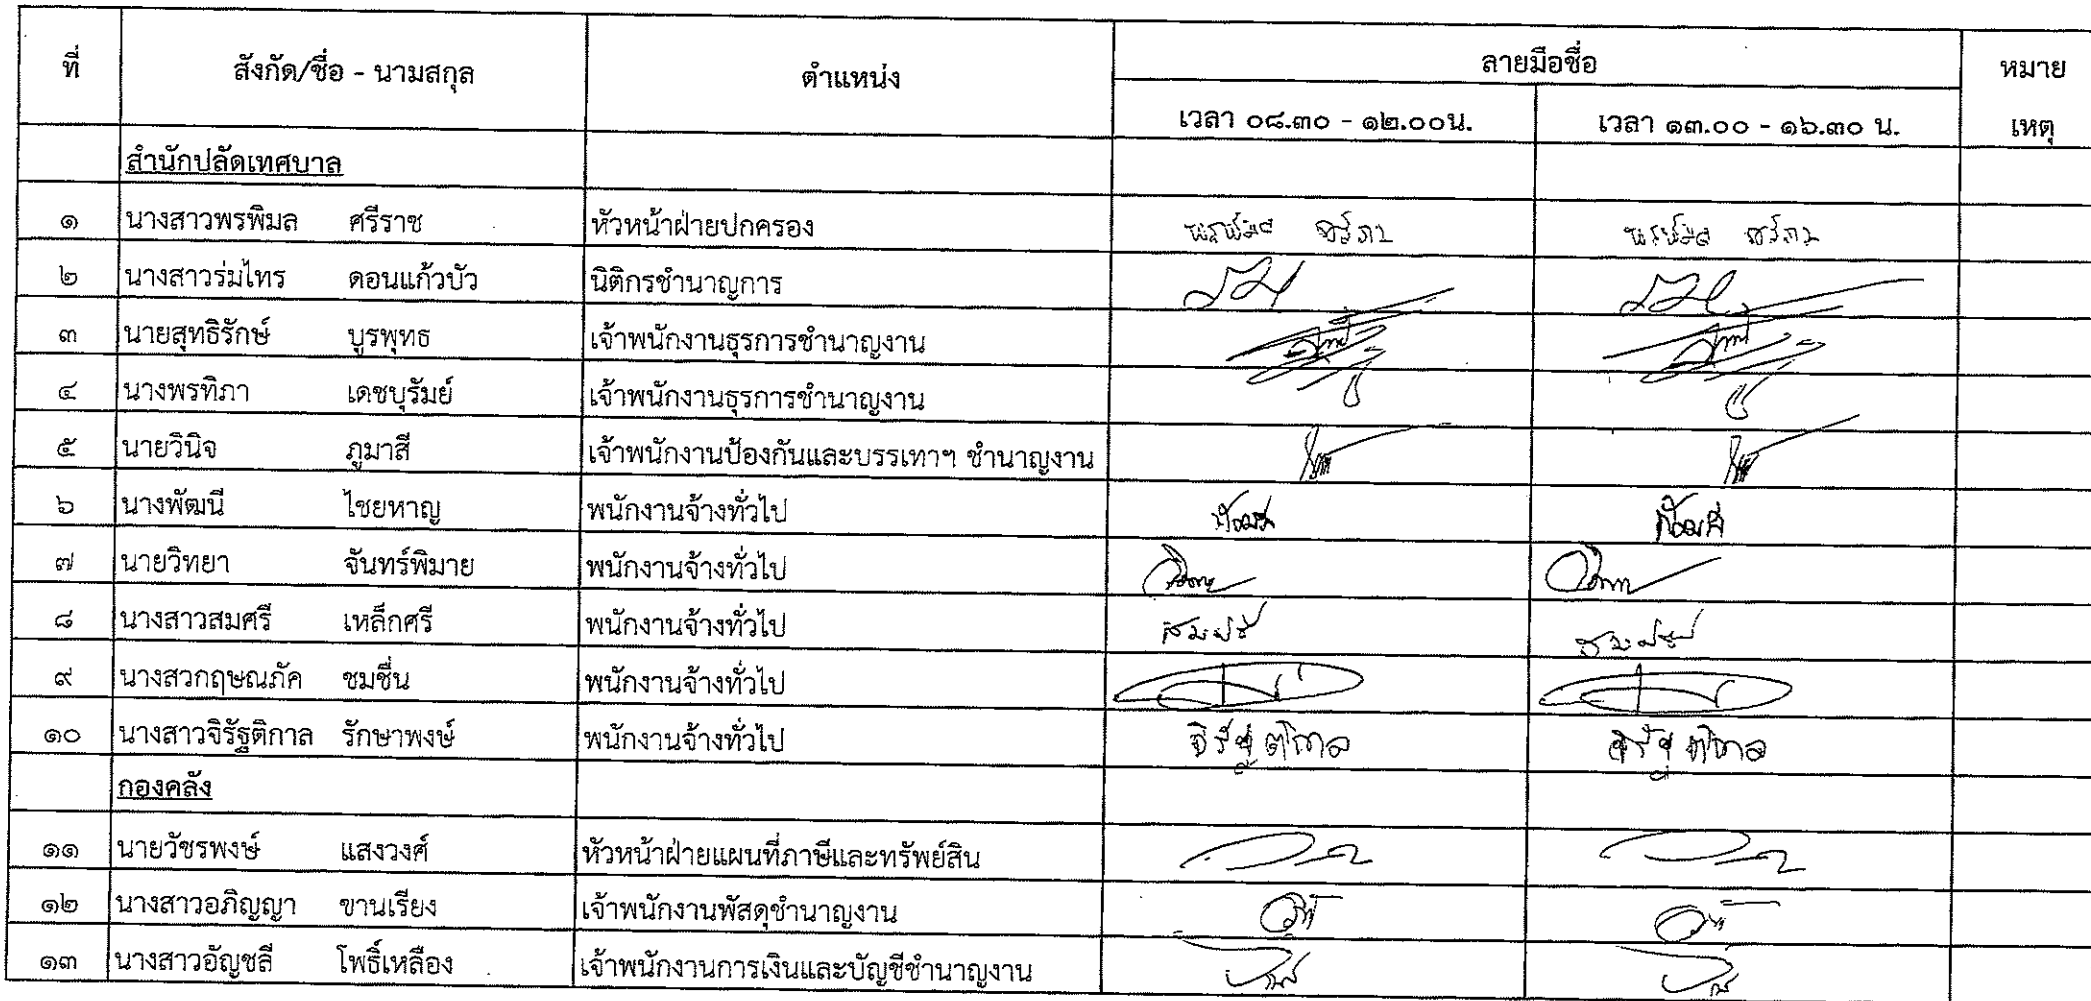 ที่ สังกัด/ชื่อ - นามสกุล ตำแหน่ง ลายมือชื่อ หมาย
เวลา ๐๘.๓๐ - ๑๒.๐๐น. เวลา ๑๓.๐๐ - ๑๖.๓๐ น. เหตุ
สำนักปลัดเทศบาล
๑ นางสาวพรพิมล ศรีราช หัวหน้าฝ่ายปกครอง
๒ นางสาวร่มไทร ดอนแก้วบัว นิติกรชำนาญการ
๓ นายสุทธิรักษ์ บูรพุทธ เจ้าพนักงานธุรการชำนาญงาน
๔ นางพรทิภา เดชบุรัมย์ เจ้าพนักงานธุรการชำนาญงาน
๕ นายวินิจ ภูมาสี เจ้าพนักงานป้องกันและบรรเทาฯ ชำนาญงาน
๖ นางพัฒนี ไชยหาญ พนักงานจ้างทั่วไป
๗ นายวิทยา จันทร์พิมาย พนักงานจ้างทั่วไป
๘ นางสาวสมศรี เหล็กศรี พนักงานจ้างทั่วไป สมศรี
๙ นางสวกฤษณภัค ชมชื่น พนักงานจ้างทั่วไป
๑๐ นางสาวจิรัฐติกาล รักษาพงษ์ พนักงานจ้างทั่วไป จิรัฐติกาล จิรัฐติกาล
กองคลัง
๑๑ นายวัชรพงษ์ แสงวงศ์ หัวหน้าฝ่ายแผนที่ภาษีและทรัพย์สิน
๑๒ นางสาวอภิญญา ขานเรียง เจ้าพนักงานพัสดุชำนาญงาน
๑๓ นางสาวอัญชลี โพธิ์เหลือง เจ้าพนักงานการเงินและบัญชีชำนาญงาน